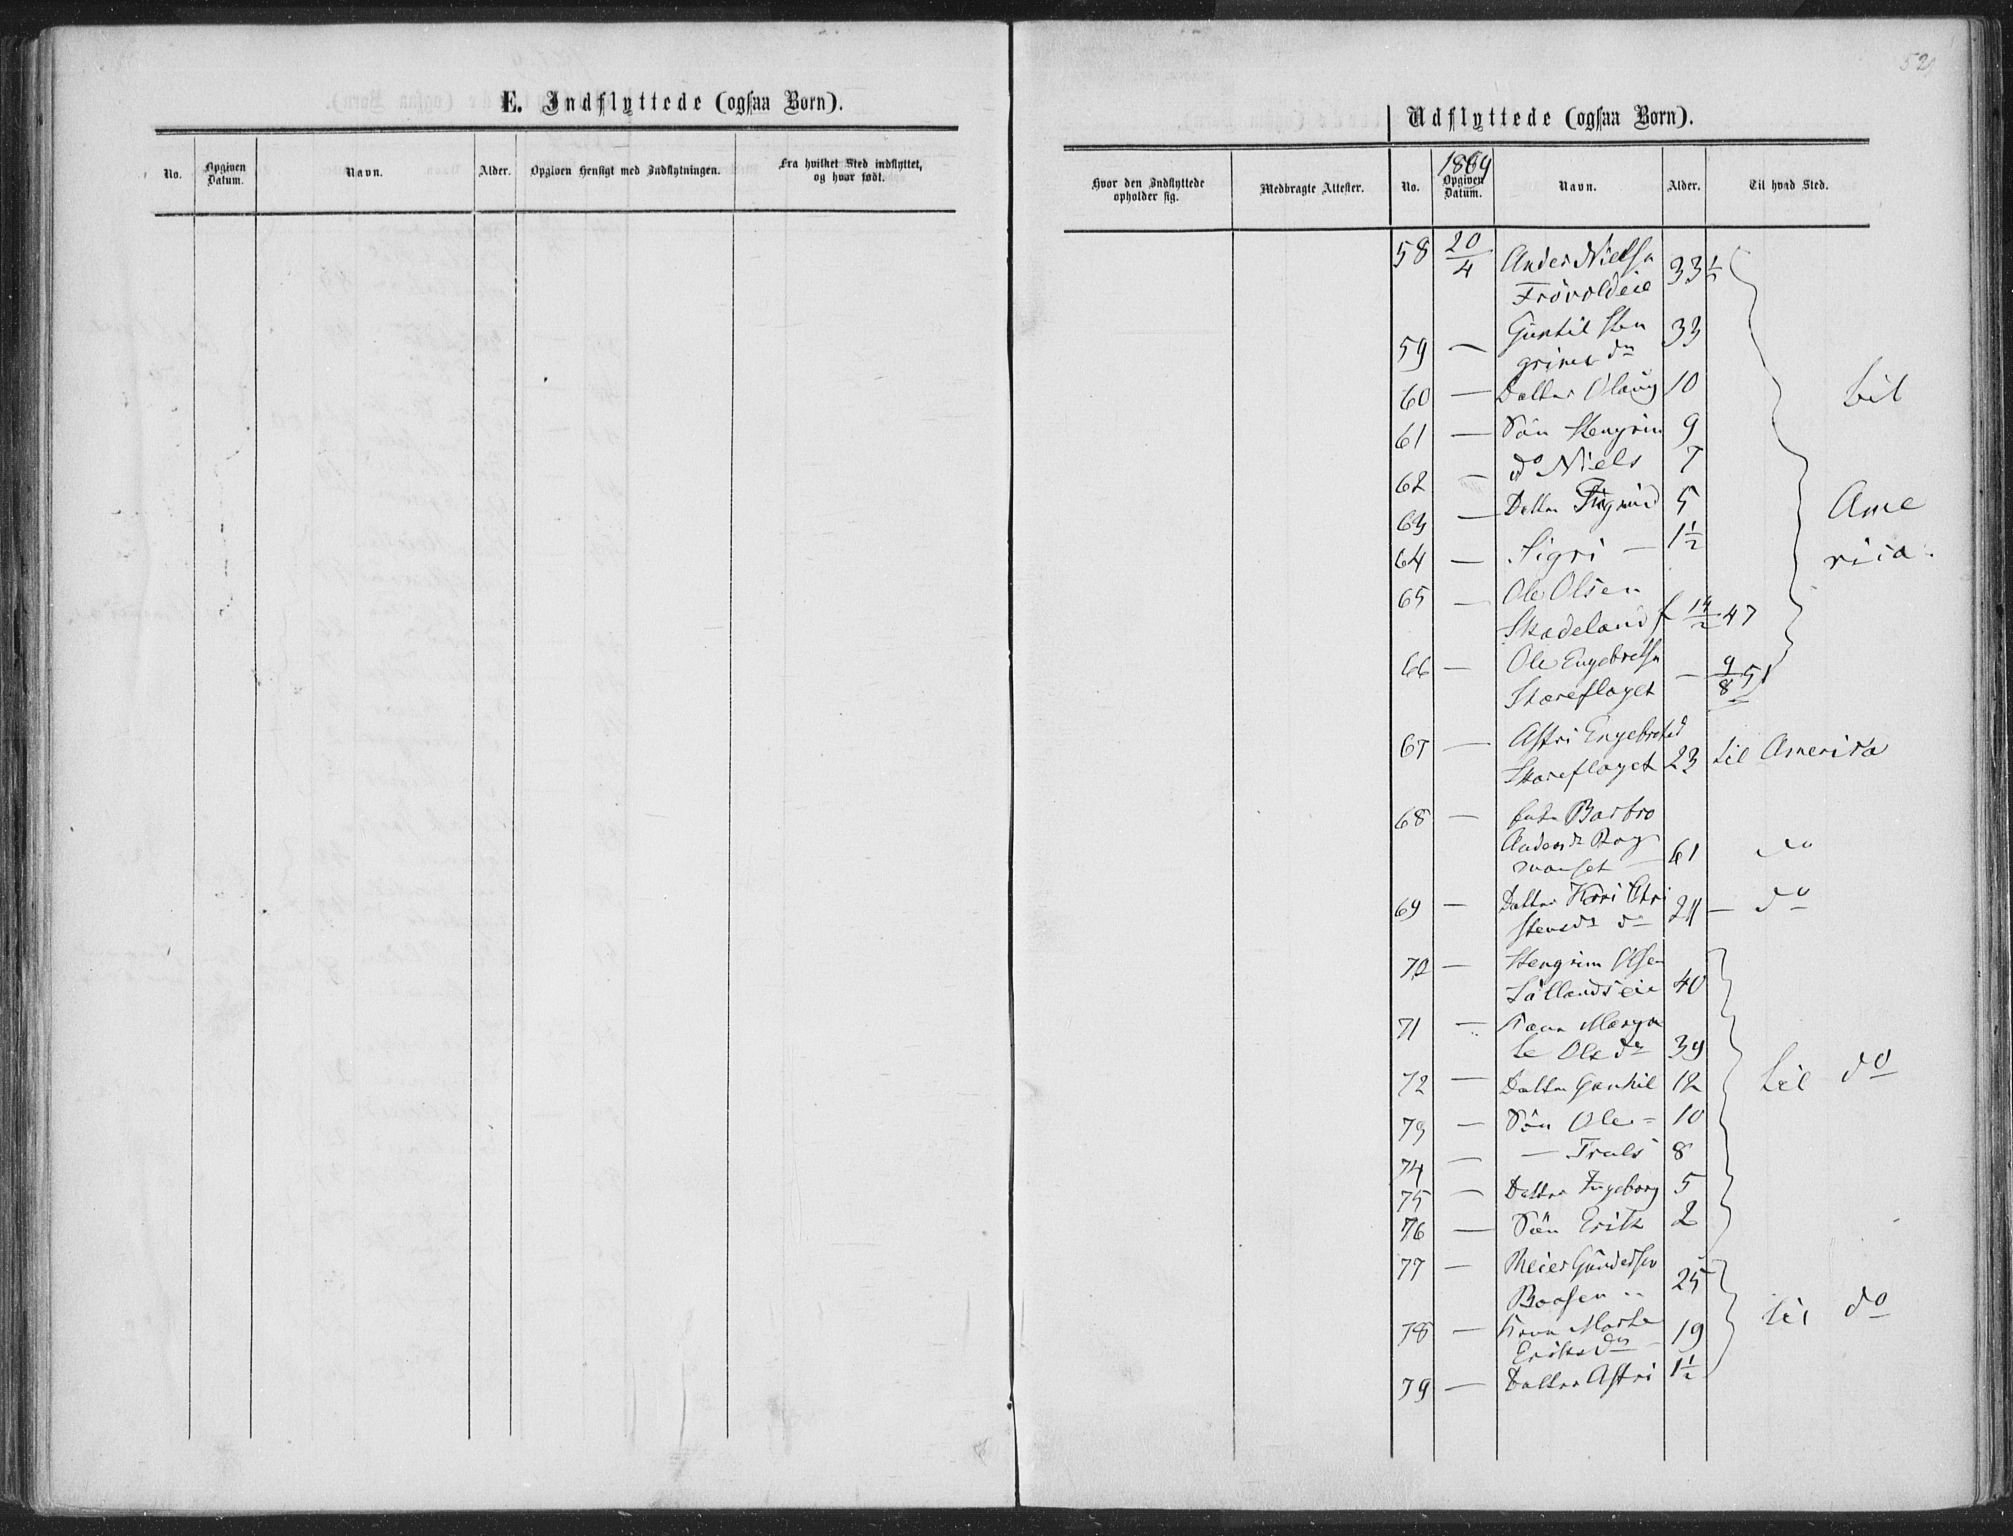 52
E. Indflyttede (ogsaa Børn).
No.
Opgiven Datum.
Navn.
Alder.
Opgiven Hensigt med Indflytningen.
Fra hvilket Sted indflyttet, og hvor født.
Udflyttede (ogsaa Børn).
Hvor den Indflyttede opholder sig.
Medbragte Attester.
No.
1869
Opgiven Datum.
Navn.
Alder.
Til hvad Sted.
58 20/4 Anders Nielsn 33½
Frövoldeie
59 — Gunhil Sten 33
grims dr
60 — Datter Olaug 10
61 — Sön Stengrim 9
til
62 — do Niels 7
63 — Datter 5
Ame
64 — Sigri — 1½
rica
65 — Ole Olsen
Skadeland f 14/2 47
66 — Ole Engebretsn
Skareflaget — 9/8 51
67 — Astri Engebretsd
Skareflaget 23 til Amerika
68 — Barbro
Andersdr
61 do
69 — Datter Kari Chri
stensdr do 21 — do
70 — Stengrim Olsen
40
71 — Kone Margre
te Olsdr 39
72 — Datter Gunhil 12 til do
73 — Sön Ole — 10
74 — — Truls 8
75 — Datter Ingeborg 5
76 — Sön Erik 2
77 — Reier Gundersen
25
78 — Kone Marte 19 til do
Eriksdr
79 — Datter Astri 1½